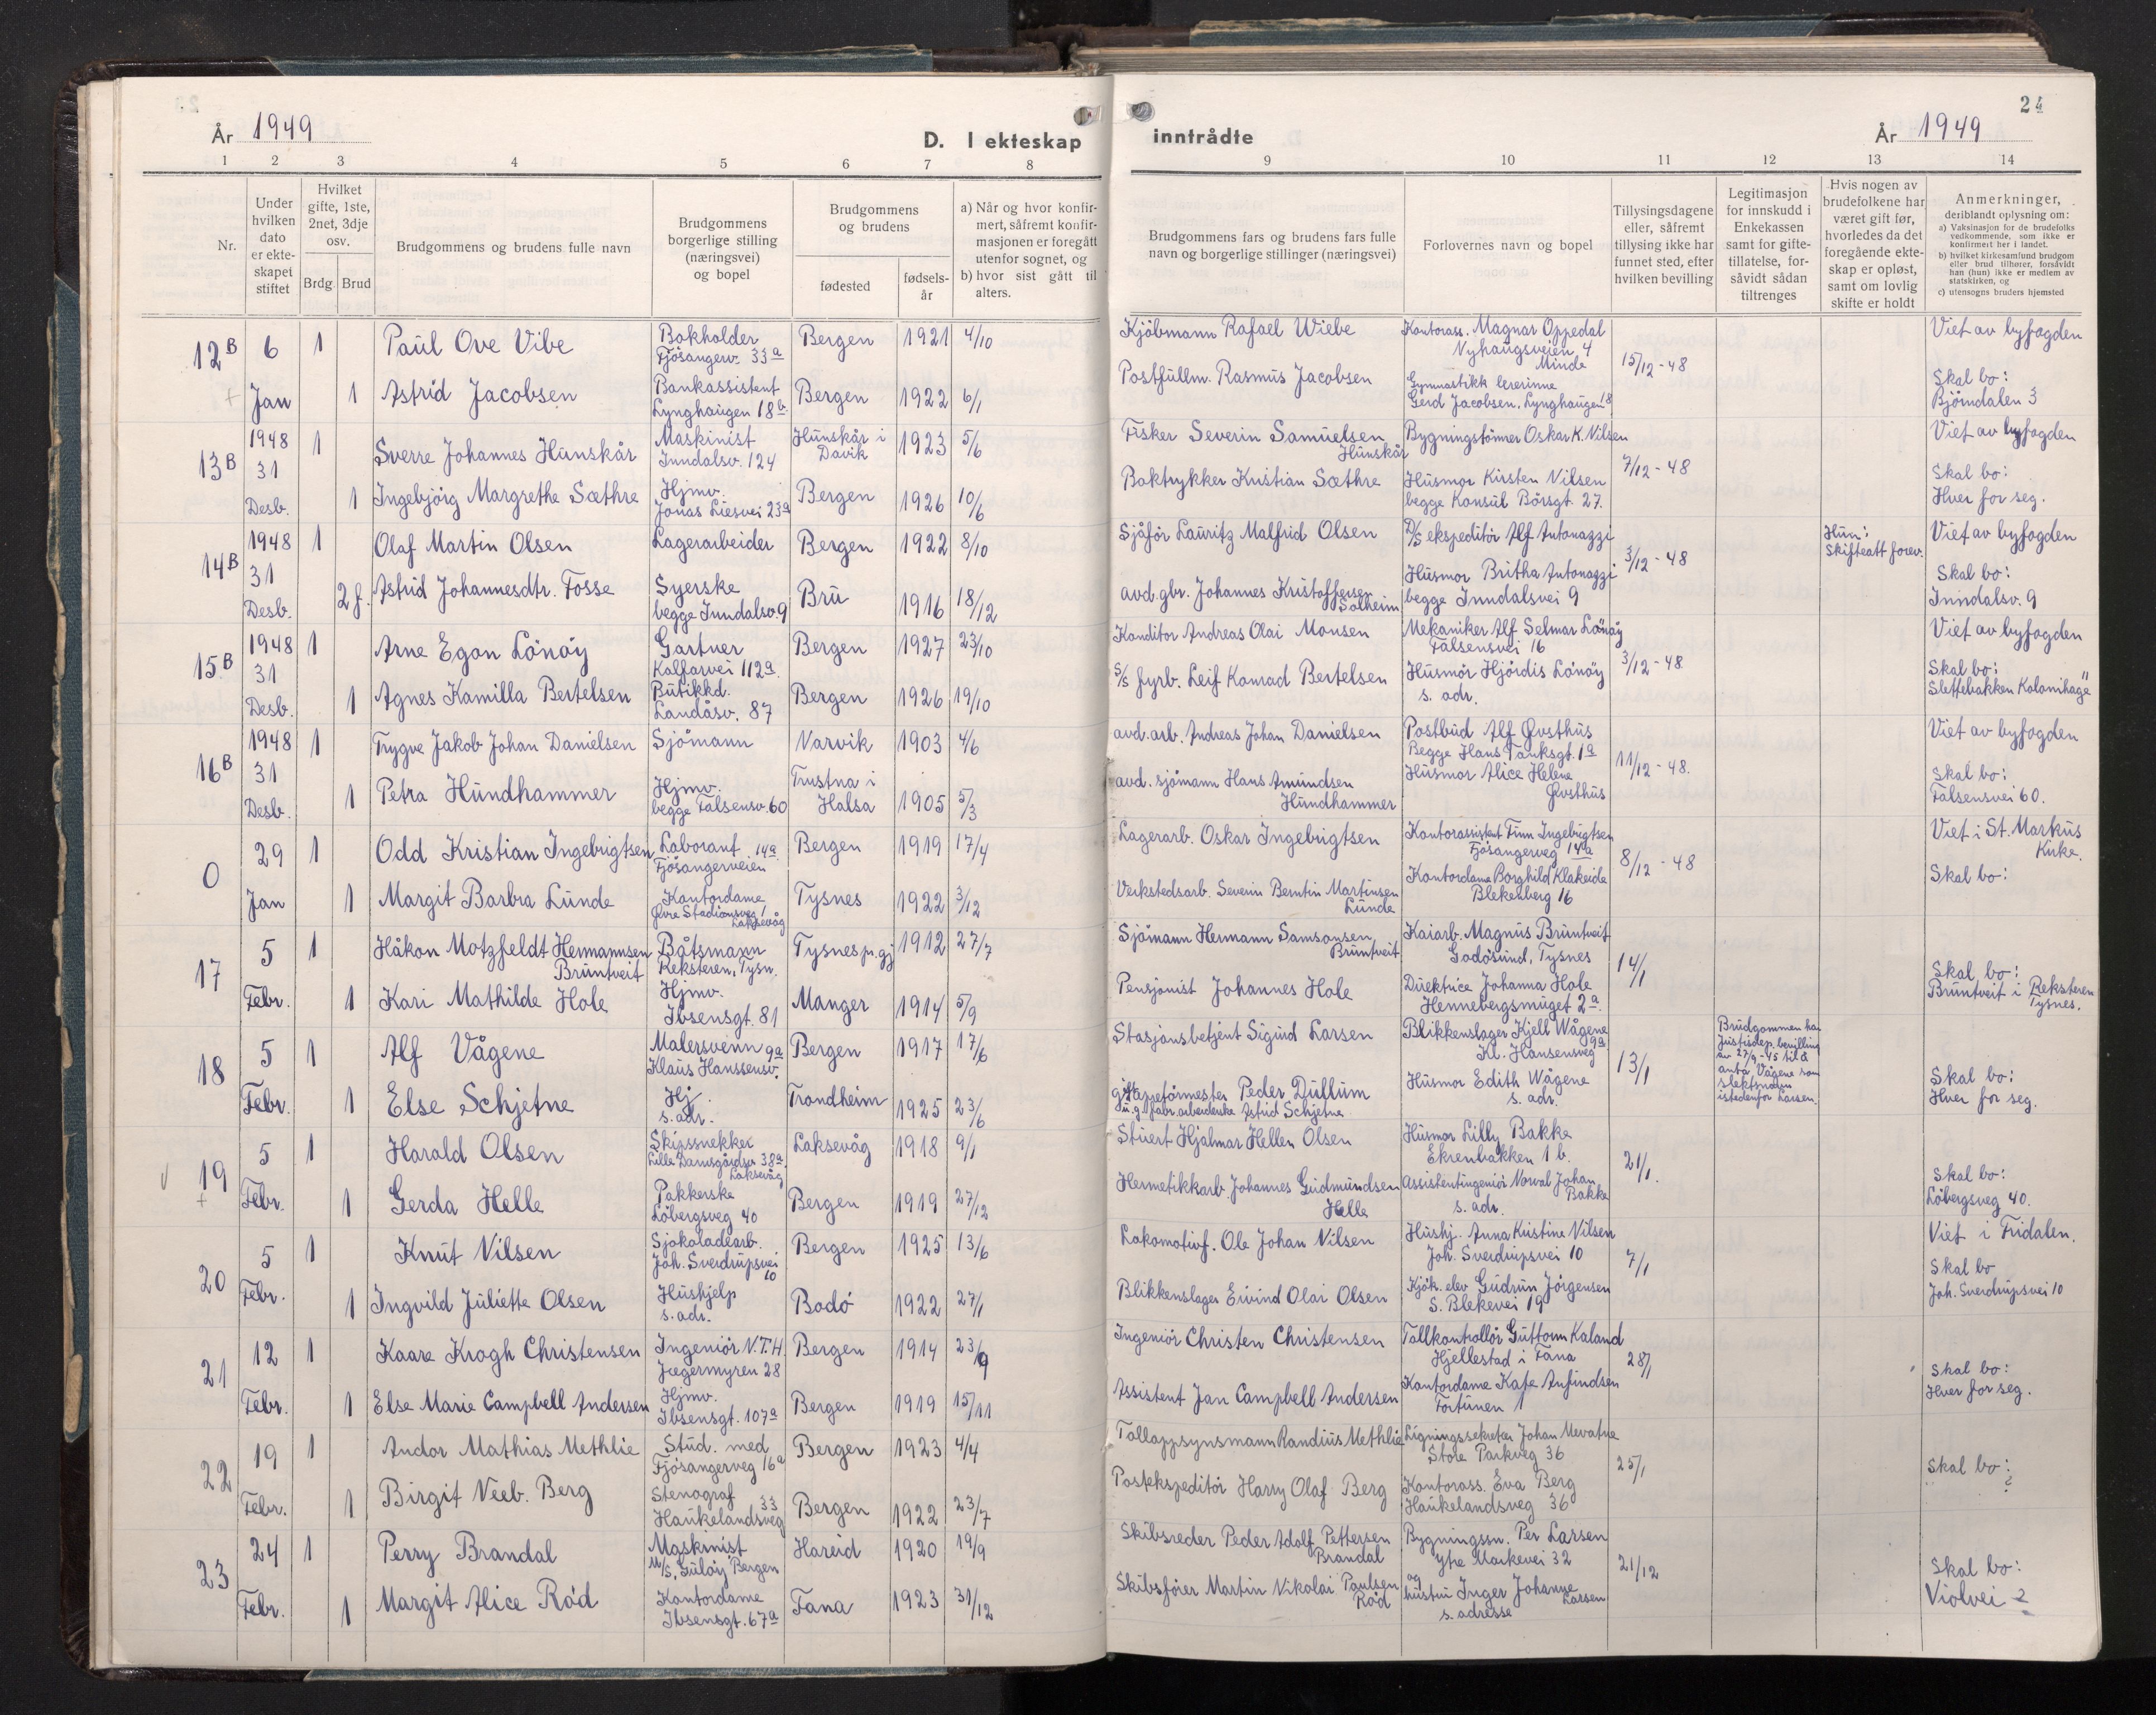 År 1949
D. I ekteskap
1 2 3 4 5 6 7 8
Nr.
Under hvilken dato er ekteskapet stiftet
Hvilket gifte, 1ste, 2net, 3dje osv.
Brdg. Brud
Brudgommens og brudens fulle navn
Brudgommens borgerlige stilling (næringsvei) og bopel
Brudgommens og brudens
fødested
fødselsår
a) Når og hvor konfirmert, såfremt konfirmasjonen er foregått utenfor sognet, og
b) hvor sist gått til alters.
12B 6 1 Paul Ove Vibe Bokholder Fjösangerv. 33a Bergen 1921 4/10
Jan 1 Astrid Jacobsen Bankassistent Lynghaugen 18b Bergen 1922 6/1
13B 1948 31 1 Sverre Johannes Hunskår Maskinist Inndalsv. 124 Hunskår i Davik 1923 5/6
Desb. 1 Ingebjörg Margrethe Sæthre Hjmv. Jonas Liesvei 23a Bergen 1926 10/6
14B 1948 31 1 Olaf Martin Olsen Lagerarbeider Bergen 1922 8/10
Desb. 2 f. Astrid Johannesdtr. Fosse Syerske begge Inndalsv. 9 Bru 1916 18/12
15B 1948 31 1 Arne Egon Lönöy Gartner Kalfarvei 112a. Bergen 1927 23/10
Desb. 1 Agnes Kamilla Bertelsen Butikkd. Landåsv. 87 Bergen 1926 19/10
16B 1948 31 1 Trygve Jakob Johan Danielsen Sjömann Narvik 1903 4/6
Desb. 1 Petra Hundhammer Hjmv. begge Falsensv. 60 Trustna i Halsa 1905 5/3
0 29 1 Odd Kristian Ingebrigtsen Laborant 14a Fjösangerveien Bergen 1919 17/4
Jan 1 Margit Barbra Lunde Kontordame Øvre Stadionsveg 1 Laksevåg Tysnes 1922 3/12
17 5 1 Håkon Motzfeldt Hermannsen Bruntveit Båtsmann Reksteren, Tysn. Tysnes pr.gj 1912 27/7
Febr. 1 Kari Mathilde Hole Hjmv. Ibsensgt. 81 Manger 1914 5/9
18 5 1 Alf Vågene Malersvenn 9a Klaus Hanssensv. Bergen 1917 17/6
Febr. 1 Else Schjetne Hj. s. adr. Trondheim 1925 23/6
19 5 1 Harald Olsen Skipssnekker Lille Damsgårdsv 38a. Laksevåg Laksevåg 1918 9/1
Febr. 1 Gerda Helle Pakkerske Löbergsveg 40 Bergen 1919 27/12
20 5 1 Knut Nilsen Sjokoladearb. Joh. Sverdrupsvei 10 Bergen 1925 13/6
Febr. 1 Ingvild Juliette Olsen Hushjelp s. adr. Bodö 1922 27/1
21 12 1 Kaare Krogh Christensen Ingeniör N.T.H. Jægermyren 28 Bergen 1914 23/9
Febr. 1 Else Marie Campbell Andersen Hjmv. Ibsensgt. 107a Bergen 1919 15/11
22 19 1 Andor Mathias Methlie Stud. med Fjösangerveg 16a Bergen 1923 4/4
Febr. 1 Birgit Neeb. Berg Stenograf 33 Haukelandsveg Bergen 1922 23/7
23 24 1 Perry Brandal Maskinist M/S. Guløy Bergen Hareid 1920 19/9
Febr. 1 Margit Alice Röd Kontordame Ibsensgt. 67a Fana 1923 31/12
24
inntrådte
År 1949
9 10 11 12 13 14
Brudgommens fars og brudens fars fulle navn og borgerlige stillinger (næringsvei)
Forlovernes navn og bopel
Tillysingsdagene eller, såfremt tillysing ikke har funnet sted, efter hvilken bevilling
Legitimasjon for innskudd i Enkekassen samt for giftetillatelse, forsåvidt sådan tiltrenges
Hvis nogen av brudefolkene har været gift før, hvorledes da det foregående ekteskap er opløst, samt om lovlig skifte er holdt
Anmerkninger, deriblandt oplysning om:
a) Vaksinasjon for de brudefolks vedkommende, som ikke er konfirmert her i landet.
b) hvilket kirkesamfund brudgom eller brud tilhører, forsåvidt han (hun) ikke er medlem av statskirken, og
c) utensogns bruders hjemsted
Kjöbmann Rafael Wiebe Kontorass. Magnar Oppedal Nyhaugsveien 4 Minde 15/12-48 Viet av byfogden
Postfullm. Rasmus Jacobsen Gymnastikk lererinne Gerd Jacobsen. Lynghaugen 18 Skal bo: Björndalen 3
Fisker Severin Samuelsen Hunskår Bygningstömrer Oskar K. Nilsen 7/12-48 Viet av byfogden
Boktrykker Kristian Sæthre Husmor Kirsten Nilsen begge Konsul Börsgt. 27. Skal bo: Hver for seg.
Sjåför Lauritz Malfrid Olsen D/S ekspeditör Alf Antonazzi 3/12-48 Hun: Skifteatt forev. Viet av byfogden
avd. gbr. Johannes Kristoffersen Solheim Husmor Britha Antonazzi begge Inndalsvei 9 Skal bo: Inndalsv. 9
Konditor Andreas Olai Monsen Mekaniker Alf Selmar Lönöy Falsensvei 16 3/12-48 Viet av byfogden
S/S fyrb. Leif Konrad Bertelsen Husmor Hjördis Lönöy s. adr. Skal bo: Slettebakken Kolonihage"
avd. arb. Andreas Johan Danielsen Postbud Alf Øvsthus Begge Hans Tanksgt. 1a 11/12-48. Viet av byfogden
avd. sjömann Hans Amundsen Hundhammer Husmor Alice Helene Øvsthus Skal bo: Falsensvei 60.
Lagerarb. Oskar Ingebrigtsen Kontorassistent Finn Ingebrigtsen Fjösangerveg 14a 8/12-48 Viet i St. Markus Kirke.
Verkstedsarb. Severin Berntin Martinsen Lunde Kontordame Borghild Klakeide Blekenberg 16 Skal bo:
Sjömann Hermann Samsonsen Bruntveit Kaiarb. Magnus Bruntveit Godösund, Tysnes 14/1
Pensjonist Johannes Hole Direktrice Johanna Hole Hennebergsmuget 2a. Skal bo: Bruntveit i Reksteren Tysnes.
Stasjonsbetjent Sigurd Larsen Blikkenslager Kjell Wågene 9a Kl. Hansensveg 13/1 Brudgommen har Justisdep. bevilling av 27/9-45 til å anta Vågene som slektsnavn istedenfor Larsen.
gift Peder Dullum u. g. fabr. arbeiderske Astrid Schjetne Husmor Edith Wågene s. adr. Skal bo: Hver for seg.
Stuert Hjalmar Hellen Olsen Husmor Lilly Bakke Ekrenbakken 1 b. 21/1.
Hermetikkarb. Johannes Gudmundsen Helle Assistentingeniör Norval Johan Bakke s. adr. Skal bo: Löbergsveg 40.
Lokomotivf. Ole Johan Nilsen Hushj. Anna Kristine Nilsen Joh. Sverdrupsvei 10 7/1 Viet i Fridalen.
Blikkenslager Eivind Olai Olsen Kjök. elev Gudrun Jörgensen S. Blekevei 19 Skal bo Joh. Sverdrupsvei 10
Ingeniör Christen Christensen Tollkontrollör Guttorm Kaland Hjellestad i Fana 28/1
Assistent Jan Campbell Andersen Kontordame Kate Anfindsen Fortunen 1 Skal bo: Hver for seg.
Tollopsynsmann Randius Methlie Ligningssekretær Johan Mevatne Store Parkveg 36 25/1
Postekspeditör Harry Olaf Berg Kontorass. Eva Berg Haukelandsveg 36 Skal bo: ?
Skibsreder Peder Adolf Pettersen Brandal Bygningssn. Per Larsen Ytre Markevei 32 21/12
Skibsförer Martin Nikolai Paulsen Röd og hustru Inger Johanne Larsen s. adresse Skal bo: Violvei 2